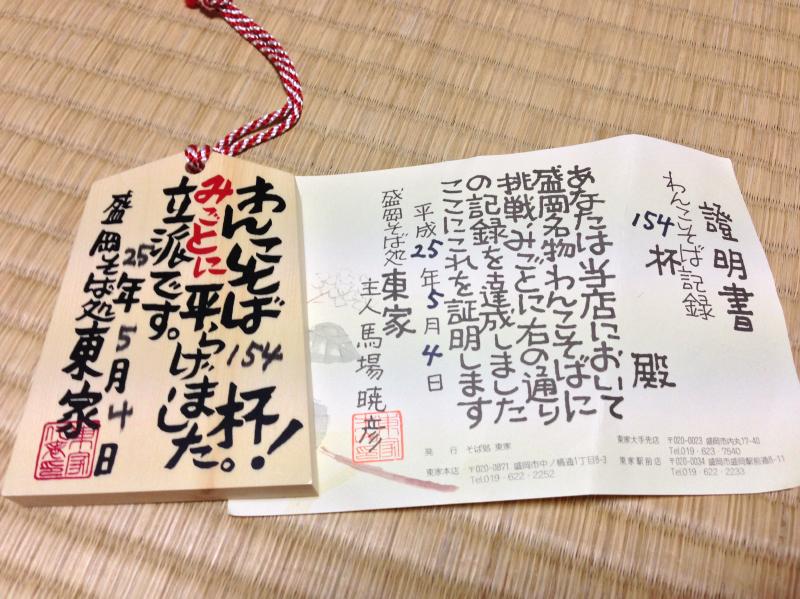 わんこそば154杯!
みごとに平らげました。
立派です。
25年5月4日
盛岡そば処東家
證明書
わんこそば記録
154杯
殿
あなたは当店において
盛岡名物わんこそばに
挑戦、みごとに右の通り
の記録を達成しました
ここにこれを証明します
平成25年5月4日
盛岡そば処東家
主人 馬場暁彦
発行 そば処 東家
東家本店 〒020-0871 盛岡市中ノ橋通1丁目8-3
Tel.019・622・2252
東家大手先店 〒020-0023 盛岡市内丸17-40
Tel.019・623・7540
東家駅前店 〒020-0034 盛岡市盛岡駅前通8-11
Tel.019・622・2233